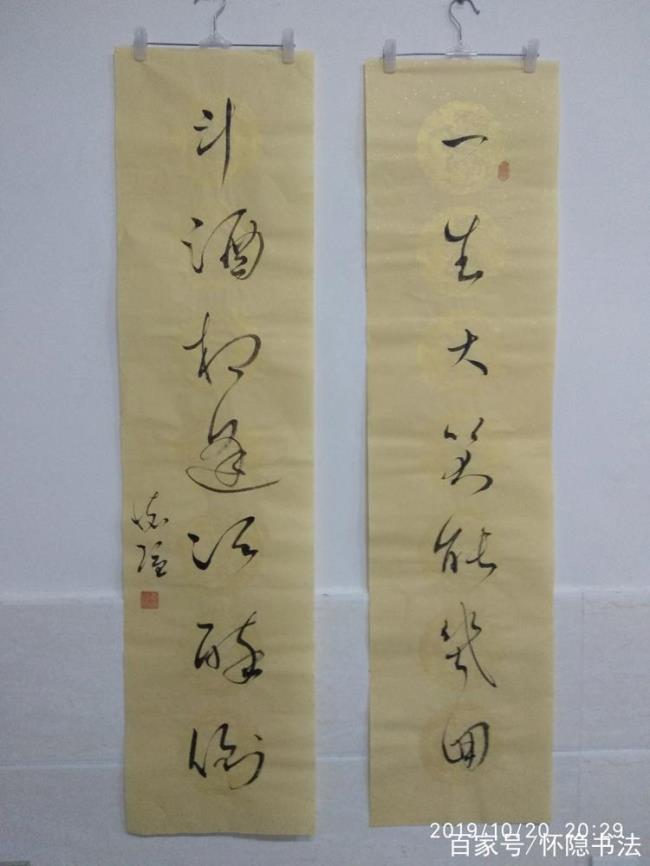 一生大笑能幾回
斗酒相逢須醉倒
懷隱
2019/10/20 20:29
百家号/怀隐书法